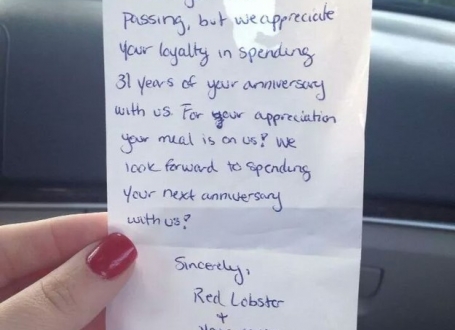 passing, but we appreciate
your loyalty in spending
31 years of your anniversary
with us. For your appreciation
your meal is on us! We
look forward to spending
your next anniversary
with us!
Sincerely,
Red Lobster
+